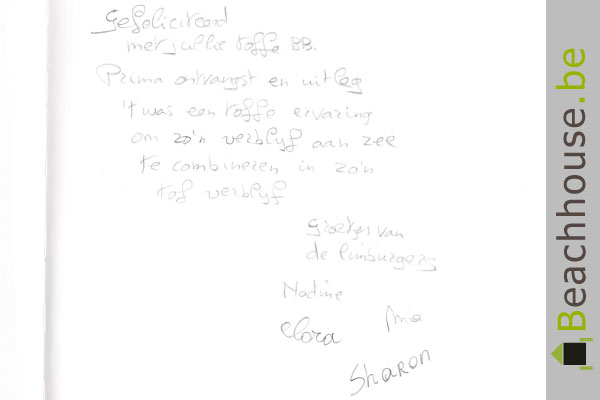 Gefeliciteerd
met jullie toffe BB.
Prima ontvangst en uitleg
't was een toffe ervaring
om zo'n verblijf aan zee
te combineren in zo'n
tof verblijf
Groetjes van
de limburgers
Nadine
Clora
Mia
Sharon
Beachhouse.be